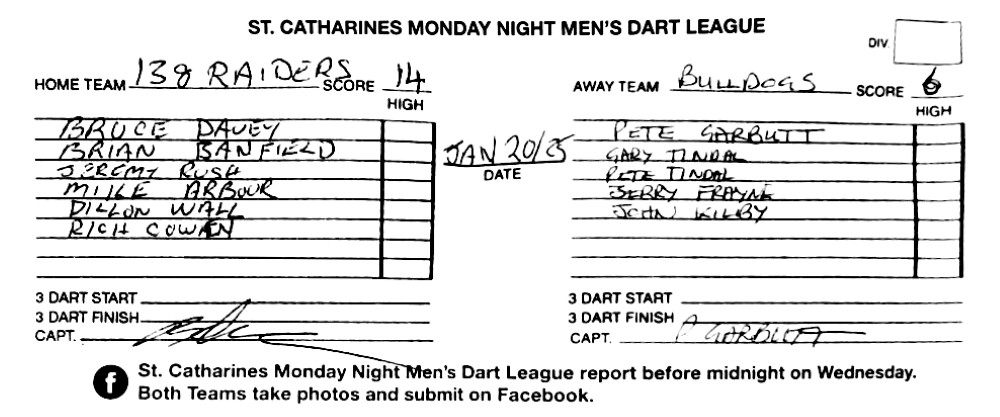 ST. CATHARINES MONDAY NIGHT MEN'S DART LEAGUE
DIV.
HOME TEAM 138 RAIDERS SCORE 14
HIGH
AWAY TEAM BULLDOGS SCORE 6
HIGH
BRUCE DAVEY
BRIAN BANFIELD
JEREMY RUSH
MIKE ARBOUR
DILLON WALL
RICH COWEN
JAN 20/25
DATE
PETE GARBUTT
GARY TINDAL
PETE TINDAL
JERRY FRAYNE
JOHN KILBY
3 DART START
3 DART FINISH
CAPT.
3 DART START
3 DART FINISH
CAPT. P GARBUTT
f St. Catharines Monday Night Men's Dart League report before midnight on Wednesday.
Both Teams take photos and submit on Facebook.